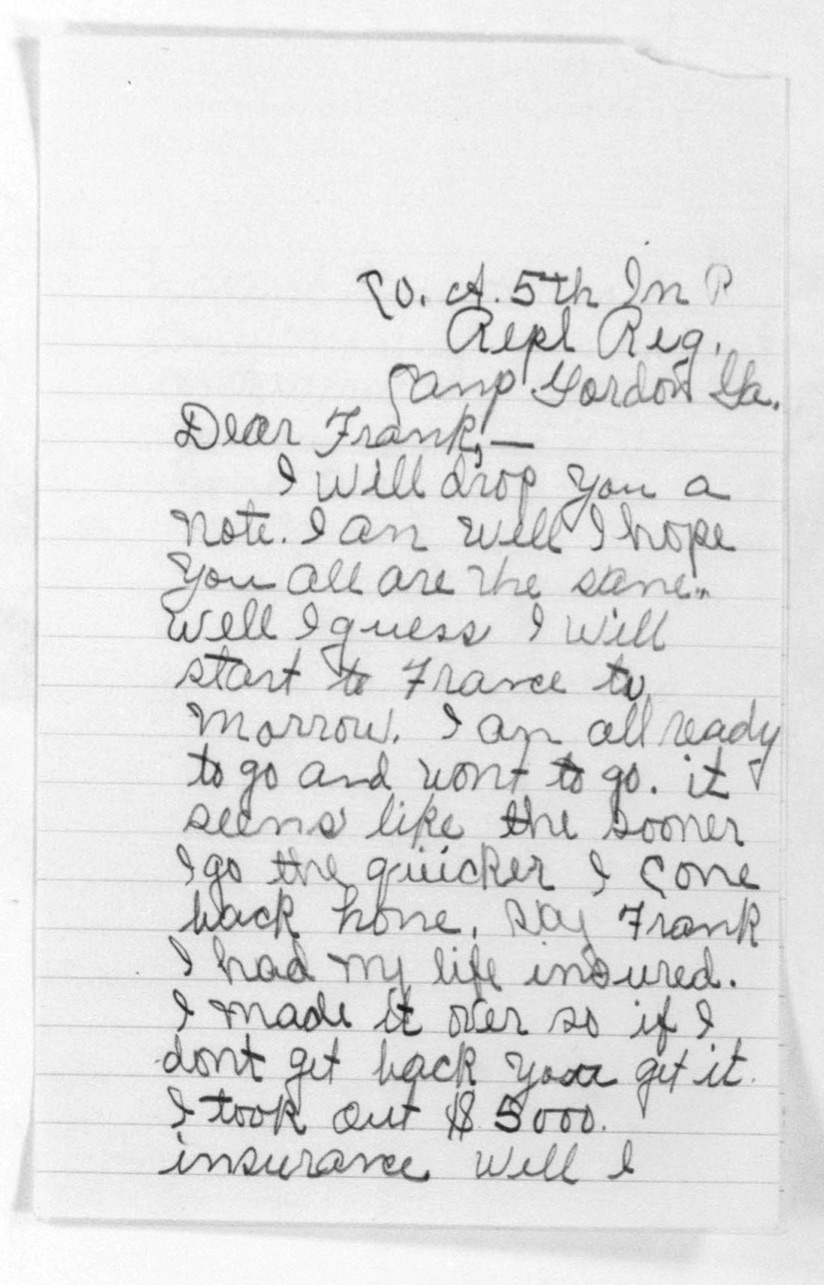 Co. A. 5th In R
Repl Reg.
Camp Gordon Ga.
Dear Frank,—
I will drop you a
note. I am well I hope
you all are the same.
Well I guess I will
start to France to
morrow. I am all ready
to go and wont to go. it
seems like the sooner
I go the quicker I come
back home. Say Frank
I had my life insured.
I made it over so if I
dont get back you get it.
I took out $5000.
insurance Well I